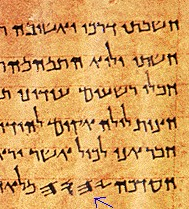 חשבתי דרכי ואשיבה ר
חשתי ולוא התמהמה
חבלי רשעים עודוני ת
חצות לילה אקום להודו
חבר אני לכול אשר ירא
חסדכה 𐤉𐤄𐤅𐤄 מלא